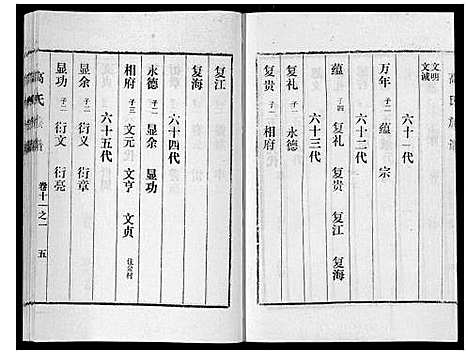 高氏族谱
文明
文诚
六十一代
万年 子二 蕴 宗
六十二代
蕴 子四 复礼 复贵 复江 复海
六十三代
复礼 子一 永德
复贵 子一 相府
复江
复海
六十四代
永德 子二 显余 显功
相府 子三 文元 文亨 文贞 住岔村
六十五代
显余 子二 衍义 衍章
显功 子二 衍文 衍亮
高氏族谱
卷十一之一
五